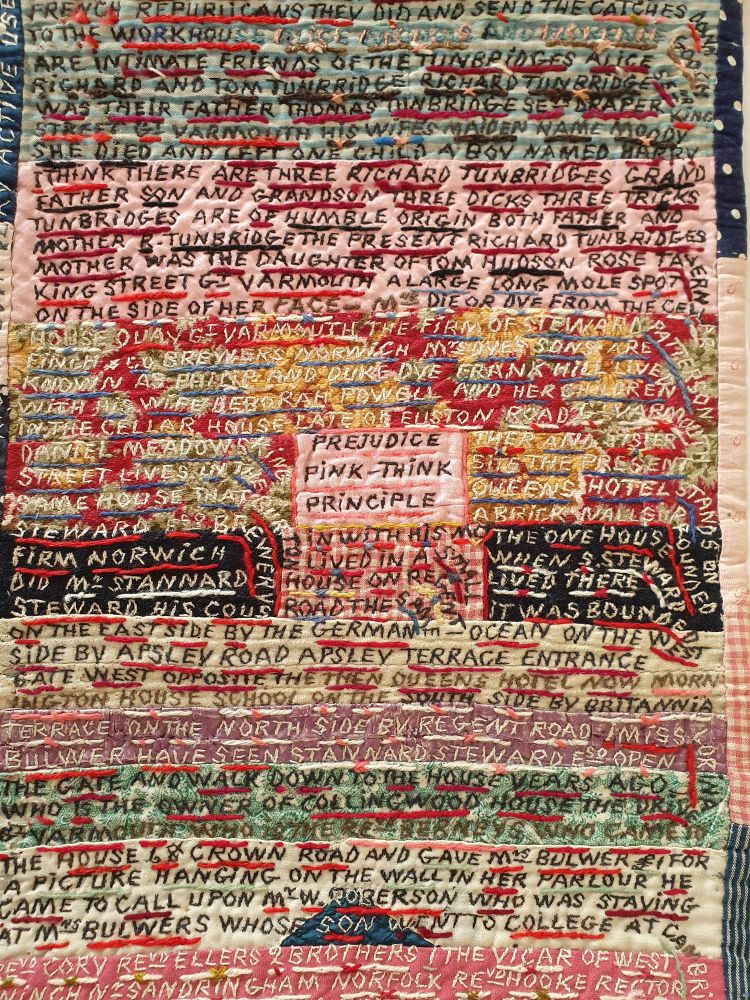 FRENCH REPUBLICANS THEY DID AND SEND THE CATCHES
TO THE WORKHOUSE
ARE INTIMATE FRIENDS OF THE TUNBRIDGES ALICE
RICHARD AND TOM TUNBRIDGE RICHARD TUNBRIDGE
WAS THEIR FATHER THOMAS TUNBRIDGE SEN DRAPER KING
STREET GT YARMOUTH HIS WIFES MAIDEN NAME MOODY
SHE DIED AND LEFT ONE CHILD A BOY NAMED HARRY
I THINK THERE ARE THREE RICHARD TUNBRIDGES GRAND
FATHER SON AND GRANDSON THREE DICKS THREE TRICKS
TUNBRIDGES ARE OF HUMBLE ORIGIN BOTH FATHER AND
MOTHER B-TUNBRIDGE THE PRESENT RICHARD TUNBRIDGES
MOTHER WAS THE DAUGHTER OF TOM HUDSON ROSE TAVERN
KING STREET GT YARMOUTH A LARGE LONG MOLE SPOT
ON THE SIDE OF HER FACE MRS DIE OR DYE FROM THE CELLAR
HOUSE QUAY GT YARMOUTH THE FIRM OF STEWARD PATTERSON
FINCH & CO BREWERS NORWICH MRS DYES SONS ARE
KNOWN AS PHILIP AND DUKE DYE FRANK HILL LIVES
WITH HIS WIFE DEBORAH POWELL AND HER CHILDREN
IN THE CELLAR HOUSE LATE OF EUSTON ROAD GT YARMOUTH
DANIEL MEADOWS
STREET LIVES IN THE
SAME HOUSE THAT
PREJUDICE
PINK-THINK
PRINCIPLE
THER AND SISTER
SITE THE PRESENT
QUEENS HOTEL STANDS ON
A BRICK WALL SURROUNDED
STEWARD ESQ BREWER
FIRM NORWICH
DID MR STANNARD
STEWARD HIS COUS
IN WITH HIS MO
LIVED IN A SMALL
HOUSE ON REGENT
ROAD THE SAME
THE ONE HOUSE
WHEN S STEWARD
LIVED THERE
IT WAS BOUNDED
ON THE EAST SIDE BY THE GERMAN — OCEAN ON THE WEST
SIDE BY APSLEY ROAD APSLEY TERRACE ENTRANCE
GATE WEST OPPOSITE THE THEN QUEENS HOTEL NOW MORN
INGTON HOUSE SCHOOL ON THE SOUTH SIDE BY BRITANNIA
TERRACE ON THE NORTH SIDE BY REGENT ROAD I MISS
BULWER HAVE SEEN STANNARD STEWARD ESQ OPEN
THE GATE AND WALK DOWN TO THE HOUSE YEARS AGO
WHO IS THE OWNER OF COLLINGWOOD HOUSE THE DRIVE
GT YARMOUTH WHO IS THE REV BERNEYS WHO CAME TO
THE HOUSE 68 CROWN ROAD AND GAVE MRS BULWER £1 FOR
A PICTURE HANGING ON THE WALL IN HER PARLOUR HE
CAME TO CALL UPON MR W. ROBERSON WHO WAS STAYING
AT MRS BULWERS WHOSE SON WENT TO COLLEGE AT CAM
REVD CORY REVD ELLERS 2 BROTHERS 1 THE VICAR OF WEST
WINCH NR SANDRINGHAM NORFOLK REVD HOOKE RECTOR